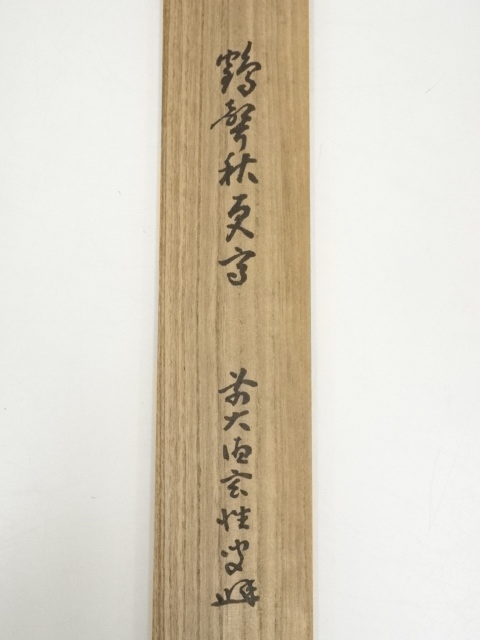 鶴聲秋更高
前大徳玄性叟